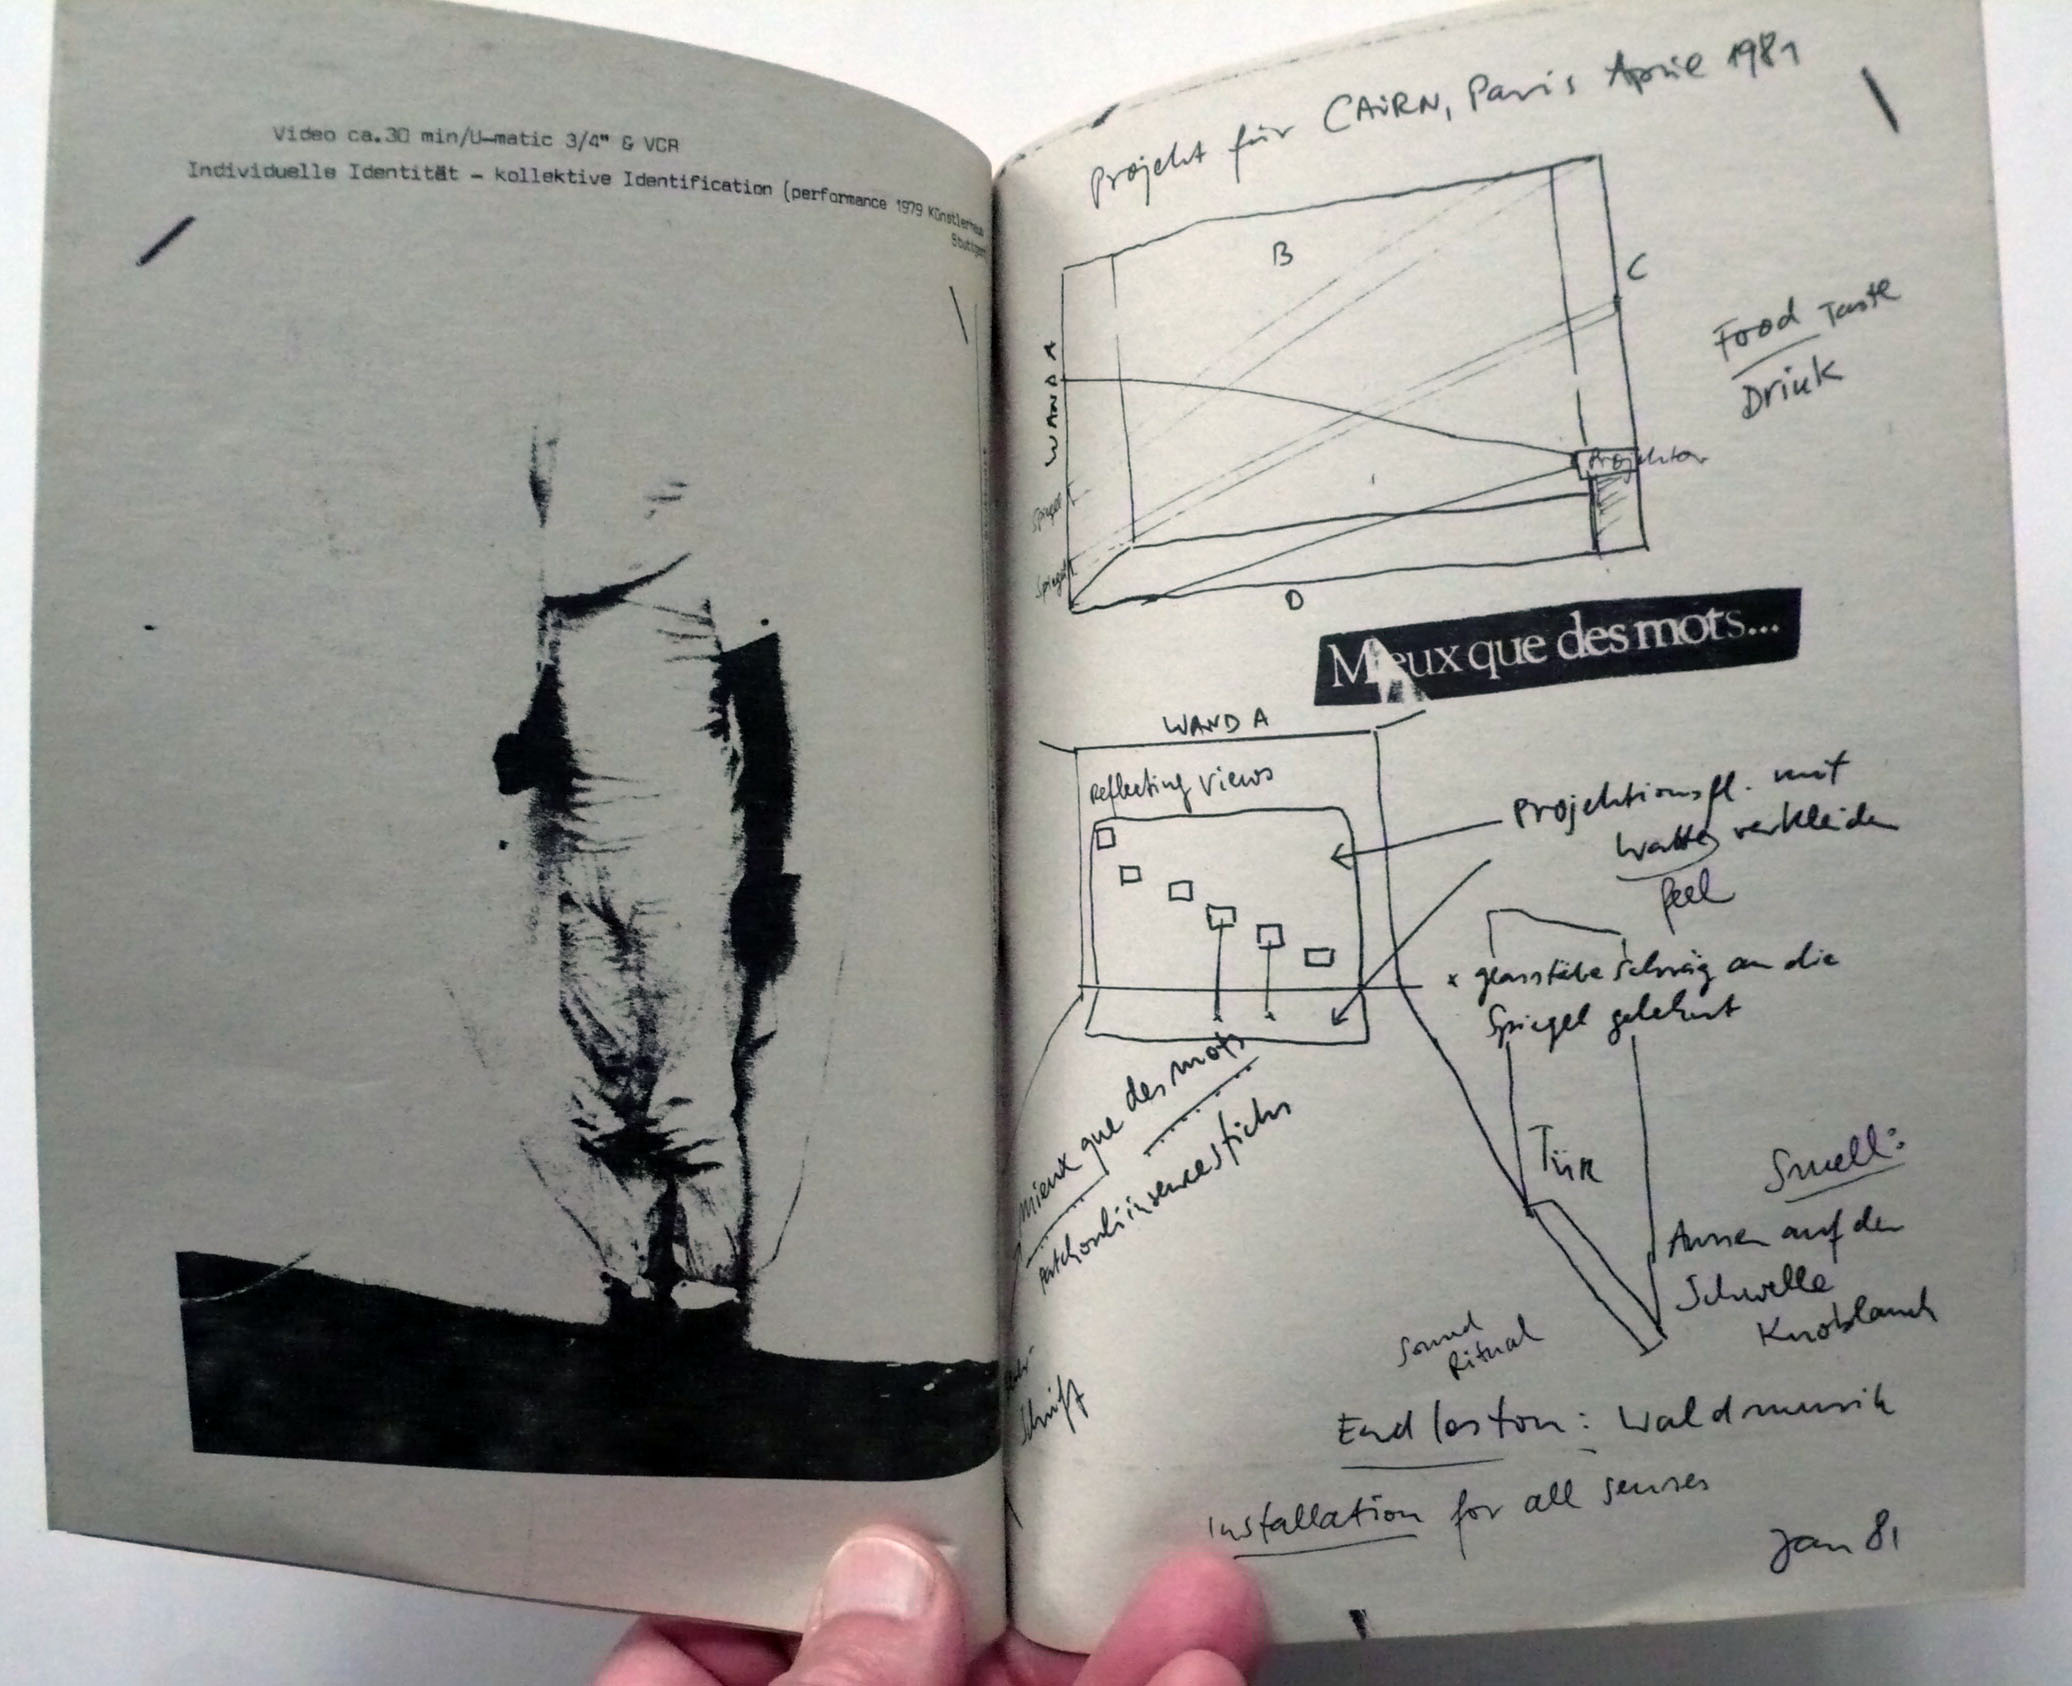 Video ca.30 min/U-matic 3/4" & VCR
Individuelle Identität - kollektive Identification (performance 1979 Künstlerhaus
Stuttgart
Projekt für CAIRN, Paris April 1981
B
C
WAND A
Food Taste
Drink
Projektor
Spiegel
Spiegel
D
Mieux que des mots...
WAND A
Reflecting Views
Projektionsfl. mit
Watte verkleiden
feel
x glasstäbe schräg an die
Spiegel gelehnt
mieux que des mots
patchouli incense sticks
TÜR
Smell:
Aussen auf der
Schwelle
Knoblauch
Sound
Ritual
Schrift
Endloston: Waldmusik
Installation for all senses
Jan 81